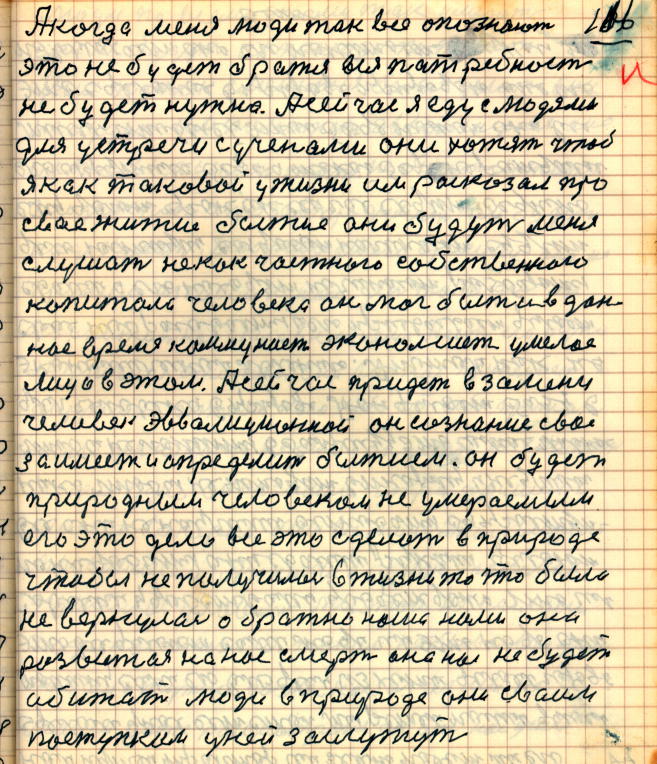 А когда меня люди так все опознают 106
это не будет братя вся патребност
не будет нужна. А сейчас я еду с людями
для устречи с ученами они хотят чтоб
я как таковой у жизни им расказал про
свае житие бытие они будут меня
слушат не как частного собственного
капитала человека он мог быт и в дан-
ное время коммунист экономист умелае
лицо в этом. А сейчас придет в замени
человек эввалиционной он сознание свое
заимеет и определит бытием. он будет
природным человеком не умераемым
его это дело все это сделат в природе
чтобы не получили в жизни то что было
не вернулас обратно наша нами она
развитая на нас смерт она нас не будет
абижат люди в природе они своим
поступкам у ней заслужут